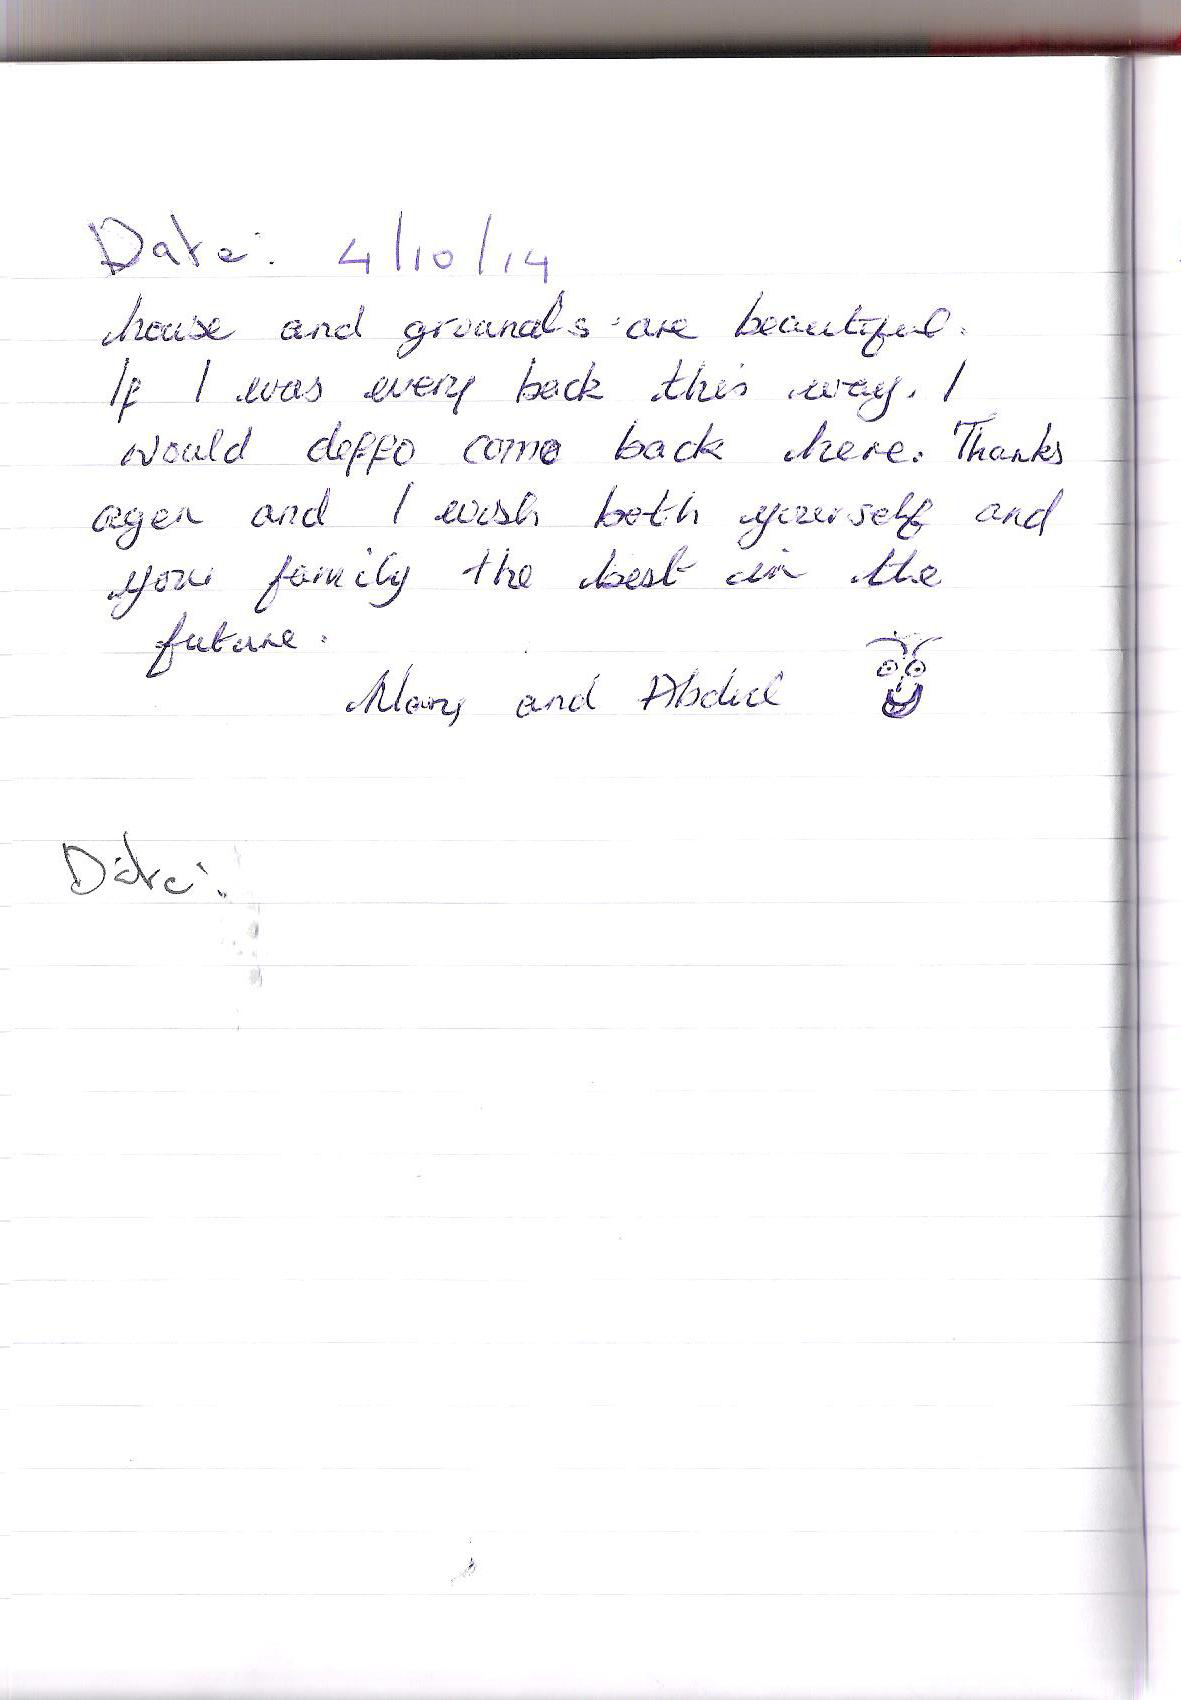 Date: 4/10/14
house and grounds are beautiful.
If I was every back this way. I
would deffo come back here. Thanks
agen and I wish both yourself and
your family the best in the
future.
Mary and Abdul
Date: